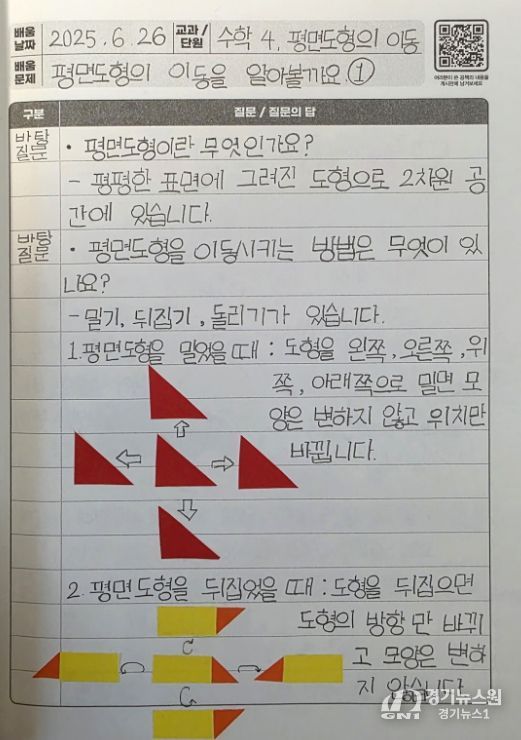 배움 날짜 2025. 6. 26 교과/단원 수학 4. 평면도형의 이동
배움 문제 평면도형의 이동을 알아볼까요 ①
구분 질문 / 질문의 답
바탕 질문 • 평면도형이란 무엇인가요?
- 평평한 표면에 그려진 도형으로 2차원 공
간에 있습니다.
바탕 질문 • 평면도형을 이동시키는 방법은 무엇이 있
나요?
- 밀기, 뒤집기, 돌리기가 있습니다.
1. 평면도형을 밀었을 때 : 도형을 왼쪽, 오른쪽, 위
쪽, 아래쪽으로 밀면 모
양은 변하지 않고 위치만
바뀝니다.
2. 평면도형을 뒤집었을 때 : 도형을 뒤집으면
도형의 방향만 바뀌
고 모양은 변하
지 않습니다
GN1 경기뉴스원
경기뉴스1